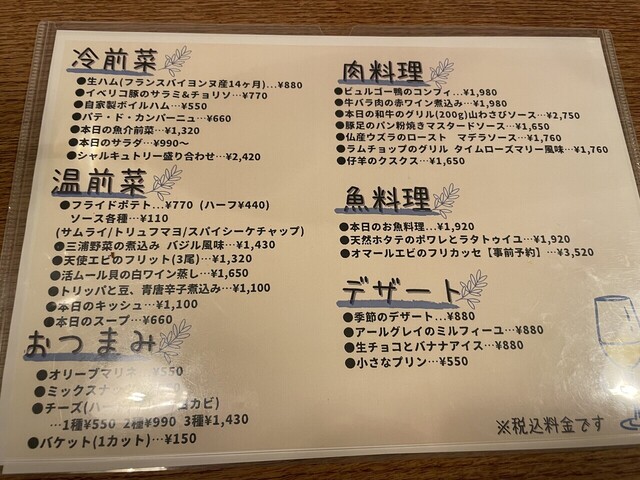 冷前菜
●生ハム(フランスバイヨンヌ産14ヶ月)…¥880
●イベリコ豚のサラミ&チョリソ…¥770
●自家製ボイルハム…¥550
●パテ・ド・カンパーニュ…¥660
●本日の魚介前菜…¥1,320
●本日のサラダ…¥990〜
●シャルキュトリー盛り合わせ…¥2,420
温前菜
●フライドポテト…¥770 (ハーフ¥440)
ソース各種…¥110
(サムライ/トリュフマヨ/スパイシーケチャップ)
●三浦野菜の煮込み バジル風味…¥1,430
●天使エビのフリット(3尾)…¥1,320
●活ムール貝の白ワイン蒸し…¥1,650
●トリッパと豆、青唐辛子煮込み…¥1,100
●本日のキッシュ…¥1,100
●本日のスープ…¥660
おつまみ
●オリーブマリネ…¥550
●ミックスナ
●チーズ(ハー カビ)
…1種¥550 2種¥990 3種¥1,430
●バケット(1カット)…¥150
肉料理
●ビュルゴー鴨のコンフィ…¥1,980
●牛バラ肉の赤ワイン煮込み…¥1,980
●本日の和牛のグリル(200g)山わさびソース…¥2,750
●豚足のパン粉焼きマスタードソース…¥1,650
●仏産ウズラのロースト マデラソース…¥1,760
●ラムチョップのグリル タイムローズマリー風味…¥1,760
●仔羊のクスクス…¥1,650
魚料理
●本日のお魚料理…¥1,920
●天然ホタテのポワレとラタトゥイユ…¥1,920
●オマールエビのフリカッセ【事前予約】…¥3,520
デザート
●季節のデザート…¥880
●アールグレイのミルフィーユ…¥880
●生チョコとバナナアイス…¥880
●小さなプリン…¥550
※税込料金です